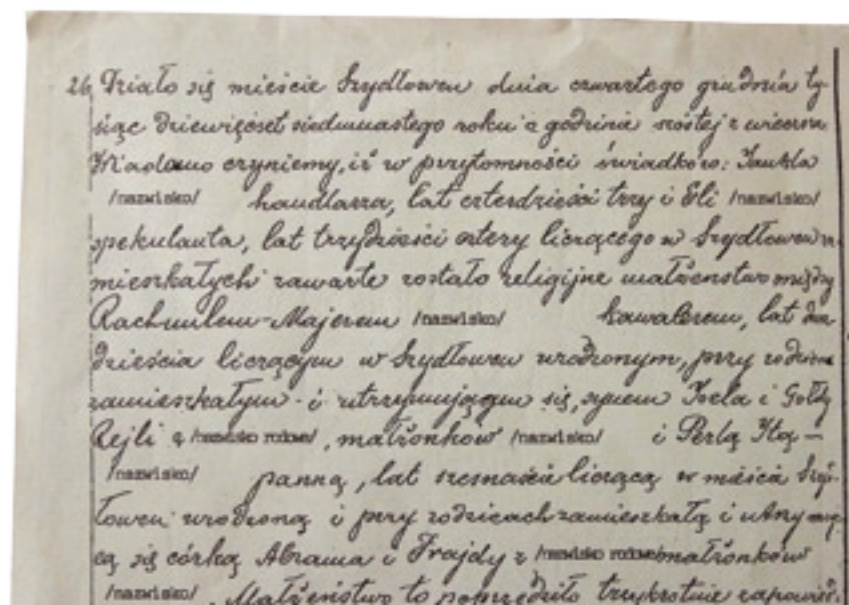 26. Działo się mieście Szydłowcu dnia czwartego grudnia ty-
siąc dziewięćset siedmnastego roku o godzinie szóstej z wieczora
Wiadomo czyniemy, iż w przytomności świadków: Jankla
/nazwisko/ handlarza, lat czterdzieści trzy i Eli /nazwisko/
spekulanta, lat trzydzieści cztery liczącego w Szydłowcu za-
mieszkałych zawarte zostało religijne małżeństwo między
Rachmilem-Majerem /nazwisko/ kawalerem, lat dwa
dzieścia liczącym w Szydłowcu urodzonym, przy rodzicach
zamieszkałym i utrzymującym się, synem Icela i Gołdy
Rejli z /nazwisko rodowe/, małżonków /nazwisko/ i Perlą Itą —
/nazwisko/ panną, lat szesnaście liczącą w mieście Szy-
łowcu urodzoną i przy rodzicach zamieszkałą i utrzymują
cą się córką Abrama i Frajdy z /nazwisko rodowe/ małżonków
/nazwisko/. Małżeństwo to poprzedziło trzykrotnie zapowied.